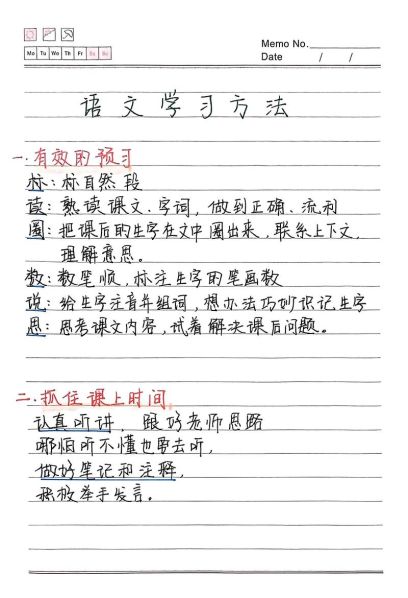 Mo Tu We Th Fr Sa Su
Memo No.
Date / /
语文学习方法
一.有效的预习
标:标自然段
读:熟读课文、字词,做到正确、流利
圈:把课后的生字在文中圈出来,联系上下文,
理解意思。
数:数笔顺,标注生字的笔画数
说:给生字注音并组词,想办法巧妙识记生字
思:思考课文内容,试着解决课后问题。
二.抓住课上时间
认真听讲,跟好老师思路
哪怕听不懂也要去听,
做好笔记和注释,
积极举手发言。